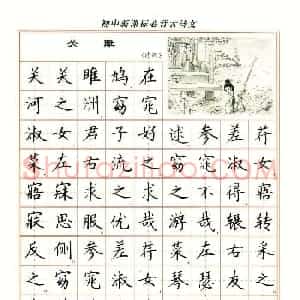 初中新课标必背古诗文
关雎
《诗经》
关关雎鸠在
河之洲窈窕
淑女君子好逑参差荇
菜左右流之窈窕淑女
寤寐求之求之不得寤
寐思服优哉游哉辗转
反侧参差荇菜左右采
之窈窕淑女琴瑟友之